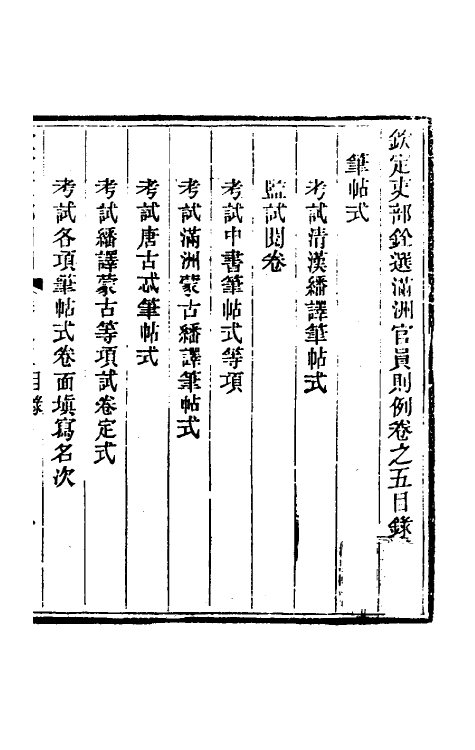 欽定吏部銓選滿洲官員則例卷之五目錄
筆帖式
考試清漢繙譯筆帖式
監試閱卷
考試中書筆帖式等項
考試滿洲蒙古繙譯筆帖式
考試唐古忒筆帖式
考試繙譯蒙古等項試卷定式
考試各項筆帖式卷面填寫名次
目錄